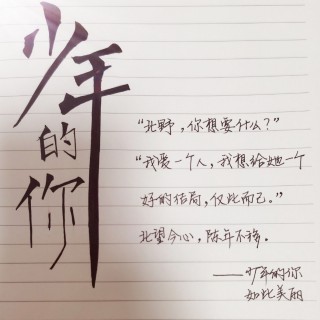 少年的你
"北野，你想要什么？"
"我爱一个人，我想给她一个
好的结局，仅此而已。"
北望今心，陈年不移。
——少年的你
如此美丽